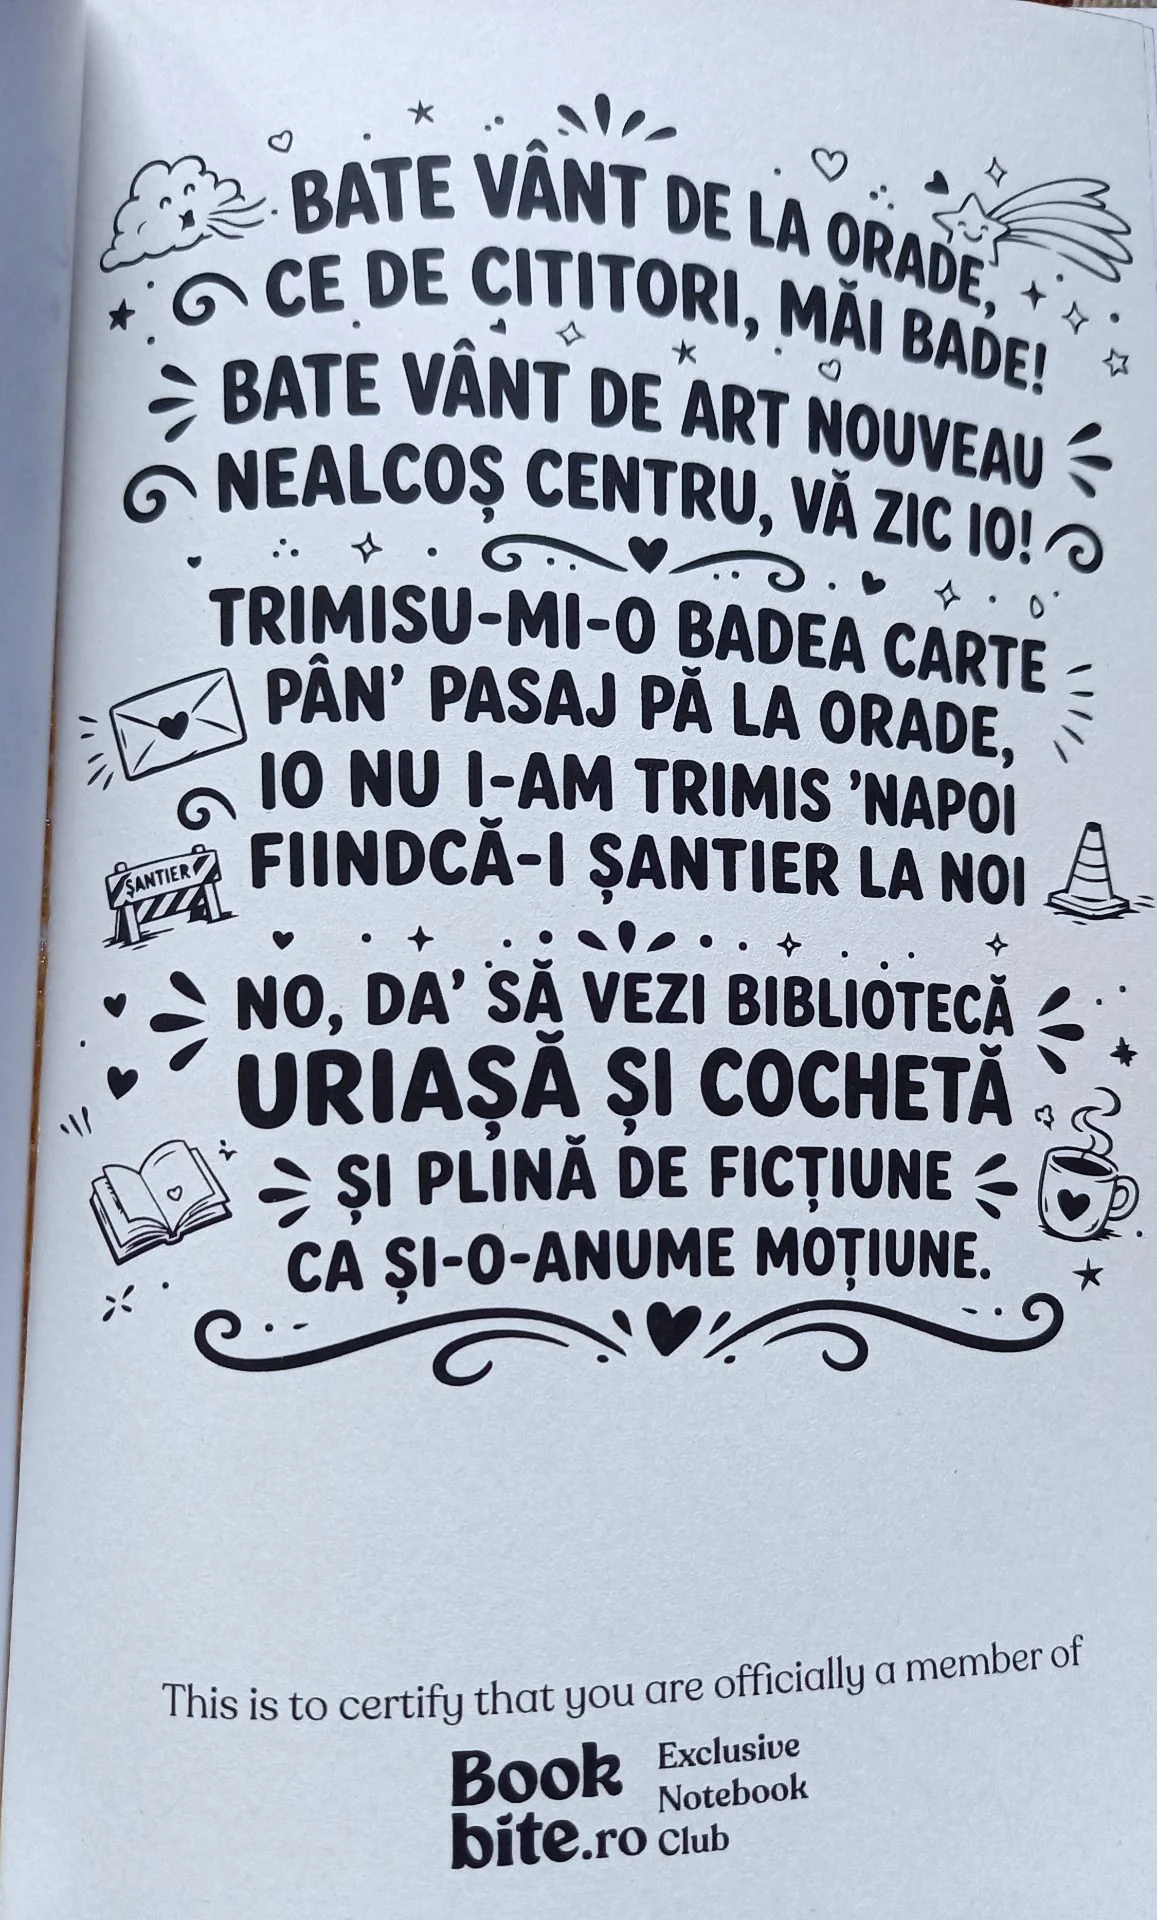 BATE VÂNT DE LA ORADE,
CE DE CITITORI, MĂI BADE!
BATE VÂNT DE ART NOUVEAU
NEALCOȘ CENTRU, VĂ ZIC IO!
TRIMISU-MI-O BADEA CARTE
PÂN' PASAJ PĂ LA ORADE,
IO NU I-AM TRIMIS 'NAPOI
FIINDCĂ-I ȘANTIER LA NOI
ȘANTIER
NO, DA' SĂ VEZI BIBLIOTECĂ
URIAȘĂ ȘI COCHETĂ
ȘI PLINĂ DE FICȚIUNE
CA ȘI-O-ANUME MOȚIUNE.
This is to certify that you are officially a member of
Book
bite.ro
Exclusive
Notebook
Club